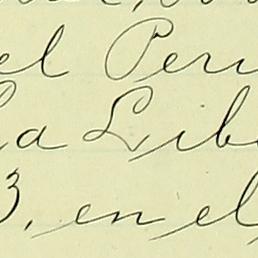 el Peru
la Libe
3, en el